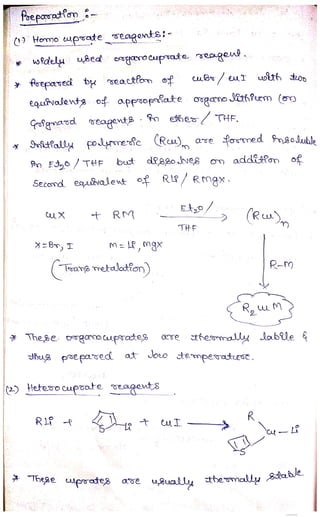 Preparation :-
(1) Homo cuprate reagents:-
* widely used organocuprate reagent.
* Prepared by reaction of CuBr / CuI with two
equivalents of appropriate organo lithium (or)
Grignard reagents. In ether / THF.
* Initially polymeric (RCu)n are formed insoluble
in Et2O / THF but dissolves on addition of
second equivalent of RLi / RMgx.
CuX + RM Et2O / THF (RCu)n
X = Br, I M = Li, Mgx
(Trans metalation)
R-M
R2CuM
* These organocuprates are thermally labile &
thus prepared at low temperature.
(2) Heterocuprate reagents
RLi + S Li + CuI R S Cu - Li
* These cuprates are usually thermally stable